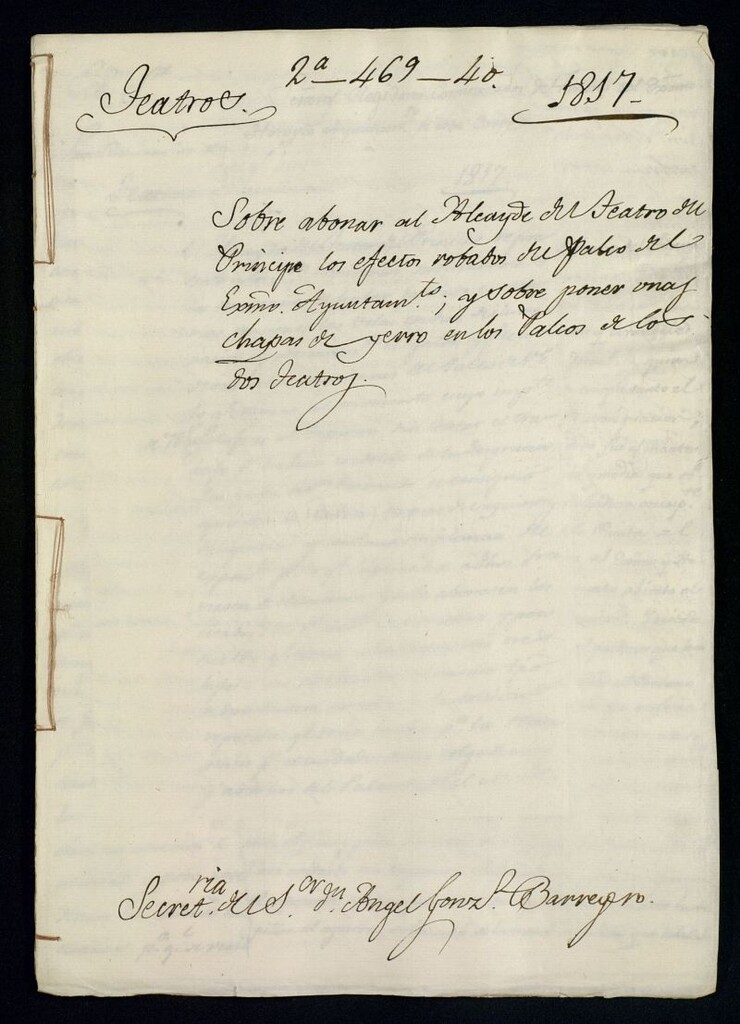 2ª-469-40.
Teatros. 1817-
Sobre abonar al Alcayde del Teatro del
Principe los efectos robados del Palco del
Exmo. Ayuntamto; y sobre poner unas
chapas de yerro en los Palcos de los
dos Teatros.
Secretria del Sor Dn Angel Gonzz. Barreyro.